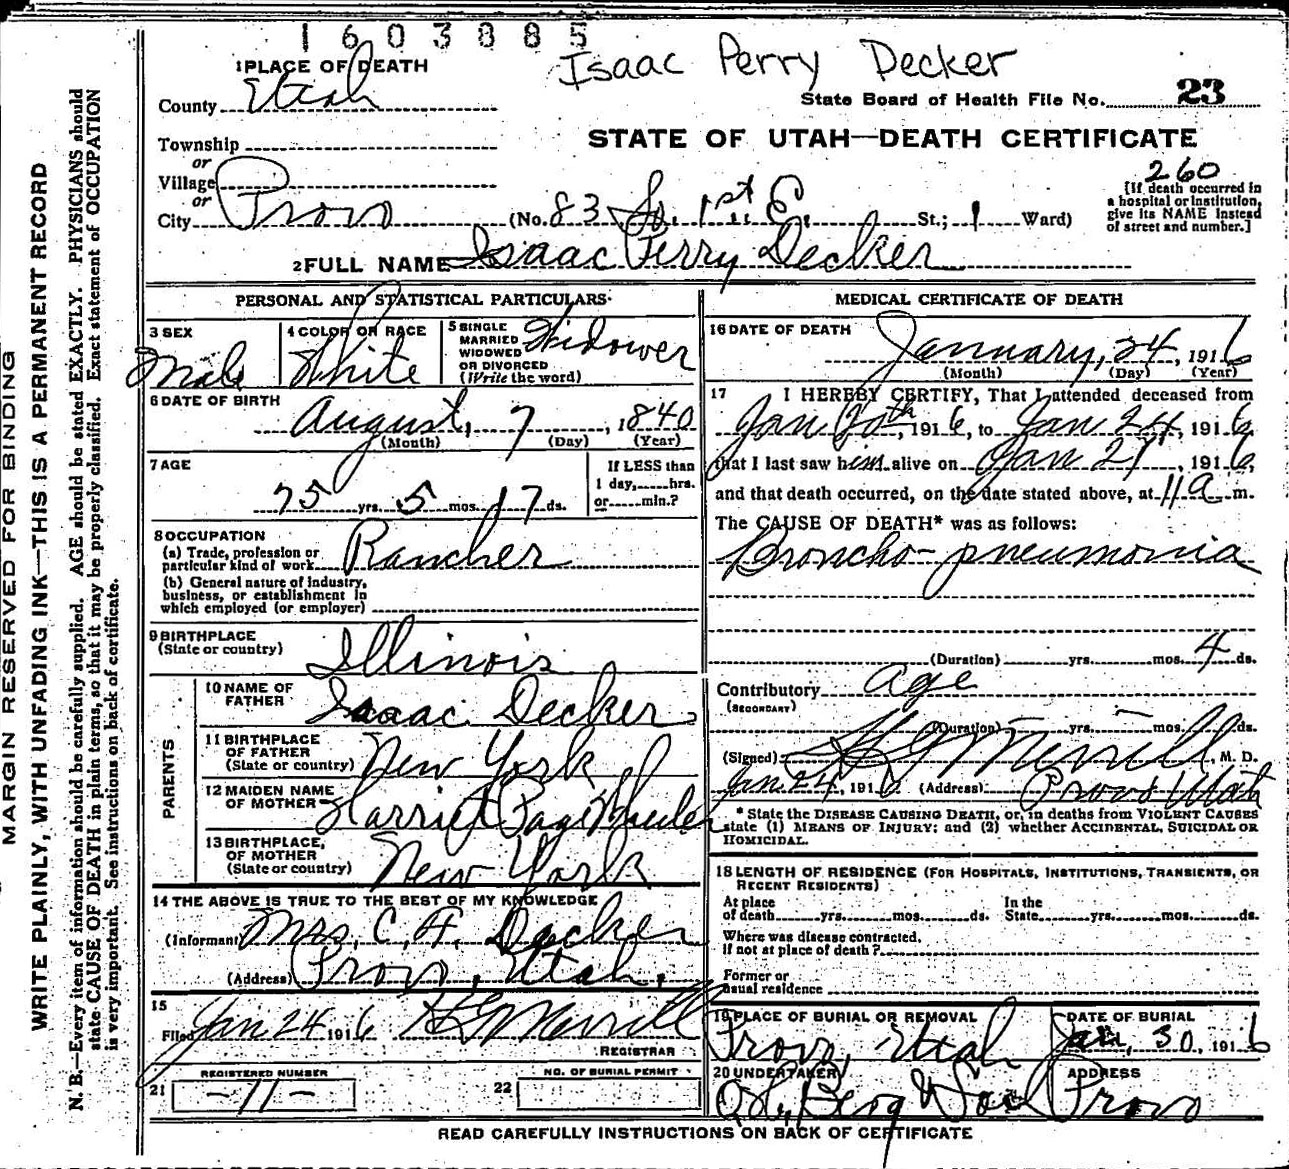 1603885
Isaac Perry Decker
1 PLACE OF DEATH
County Utah
State Board of Health File No. 23
Township
or
Village
or
City Provo (No. 83 So. 1st E. St.; 1 Ward)
STATE OF UTAH—DEATH CERTIFICATE
260
[If death occurred in
a hospital or institution,
give its NAME instead
of street and number.]
2 FULL NAME Isaac Perry Decker
PERSONAL AND STATISTICAL PARTICULARS
3 SEX
Male
4 COLOR OR RACE
White
5 SINGLE
MARRIED
WIDOWED
OR DIVORCED
(Write the word)
Widower
6 DATE OF BIRTH
August, 7, 1840
(Month) (Day) (Year)
7 AGE
75 yrs. 5 mos. 17 ds.
If LESS than
1 day,.....hrs.
or.....min.?
8 OCCUPATION
(a) Trade, profession or
particular kind of work Rancher
(b) General nature of industry,
business, or establishment in
which employed (or employer)
9 BIRTHPLACE
(State or country)
Illinois
PARENTS
10 NAME OF
FATHER
Isaac Decker
11 BIRTHPLACE
OF FATHER
(State or country)
New York
12 MAIDEN NAME
OF MOTHER
Harriet Page
13 BIRTHPLACE,
OF MOTHER
(State or country)
New York
14 THE ABOVE IS TRUE TO THE BEST OF MY KNOWLEDGE
(Informant) Mrs. C. F. Decker
(Address) Provo, Utah.
15
Filed Jan 24 1916 H G Merrill
REGISTRAR
REGISTERED NUMBER
21 -11-
NO. OF BURIAL PERMIT
22
MEDICAL CERTIFICATE OF DEATH
16 DATE OF DEATH
January, 24, 1916
(Month) (Day) (Year)
17 I HEREBY CERTIFY, That I attended deceased from
Jan 20th, 1916, to Jan 24, 1916,
that I last saw him alive on Jan , 1916,
and that death occurred, on the date stated above, at 11 a m.
The CAUSE OF DEATH* was as follows:
Broncho-pneumonia
(Duration) yrs. mos. 4 ds.
Contributory Age
(SECONDARY)
(Duration) yrs. mos. ds.
(Signed) H G Merrill, M. D.
Jan. 24, 1916 (Address) Provo Utah
* State the DISEASE CAUSING DEATH, or, in deaths from VIOLENT CAUSES
state (1) MEANS OF INJURY; and (2) whether ACCIDENTAL, SUICIDAL OR
HOMICIDAL.
18 LENGTH OF RESIDENCE (FOR HOSPITALS, INSTITUTIONS, TRANSIENTS, OR
RECENT RESIDENTS)
At place
of death yrs. mos. ds.
In the
State yrs. mos. ds.
Where was disease contracted,
if not at place of death?
Former or
usual residence
19 PLACE OF BURIAL OR REMOVAL
Provo, Utah
DATE OF BURIAL
Jan, 30, 1916
20 UNDERTAKER
Berg
ADDRESS
Provo
READ CAREFULLY INSTRUCTIONS ON BACK OF CERTIFICATE
MARGIN RESERVED FOR BINDING
WRITE PLAINLY, WITH UNFADING INK—THIS IS A PERMANENT RECORD
N. B.—Every item of information should be carefully supplied. AGE should be stated EXACTLY. PHYSICIANS should
state CAUSE OF DEATH in plain terms, so that it may be properly classified. Exact statement of OCCUPATION
is very important. See instructions on back of certificate.